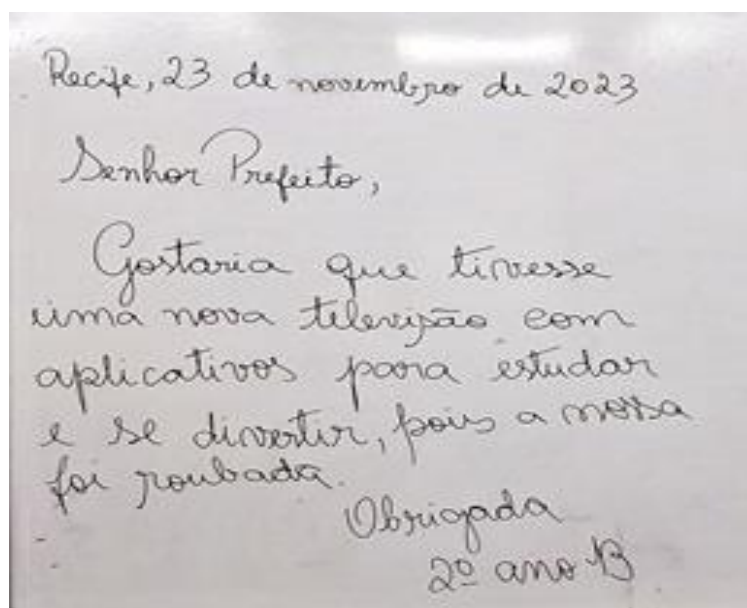 Recife, 23 de novembro de 2023
Senhor Prefeito,
Gostaria que tivesse
uma nova televisão com
aplicativos para estudar
e se divertir, pois a nossa
foi roubada.
Obrigada
2º ano B